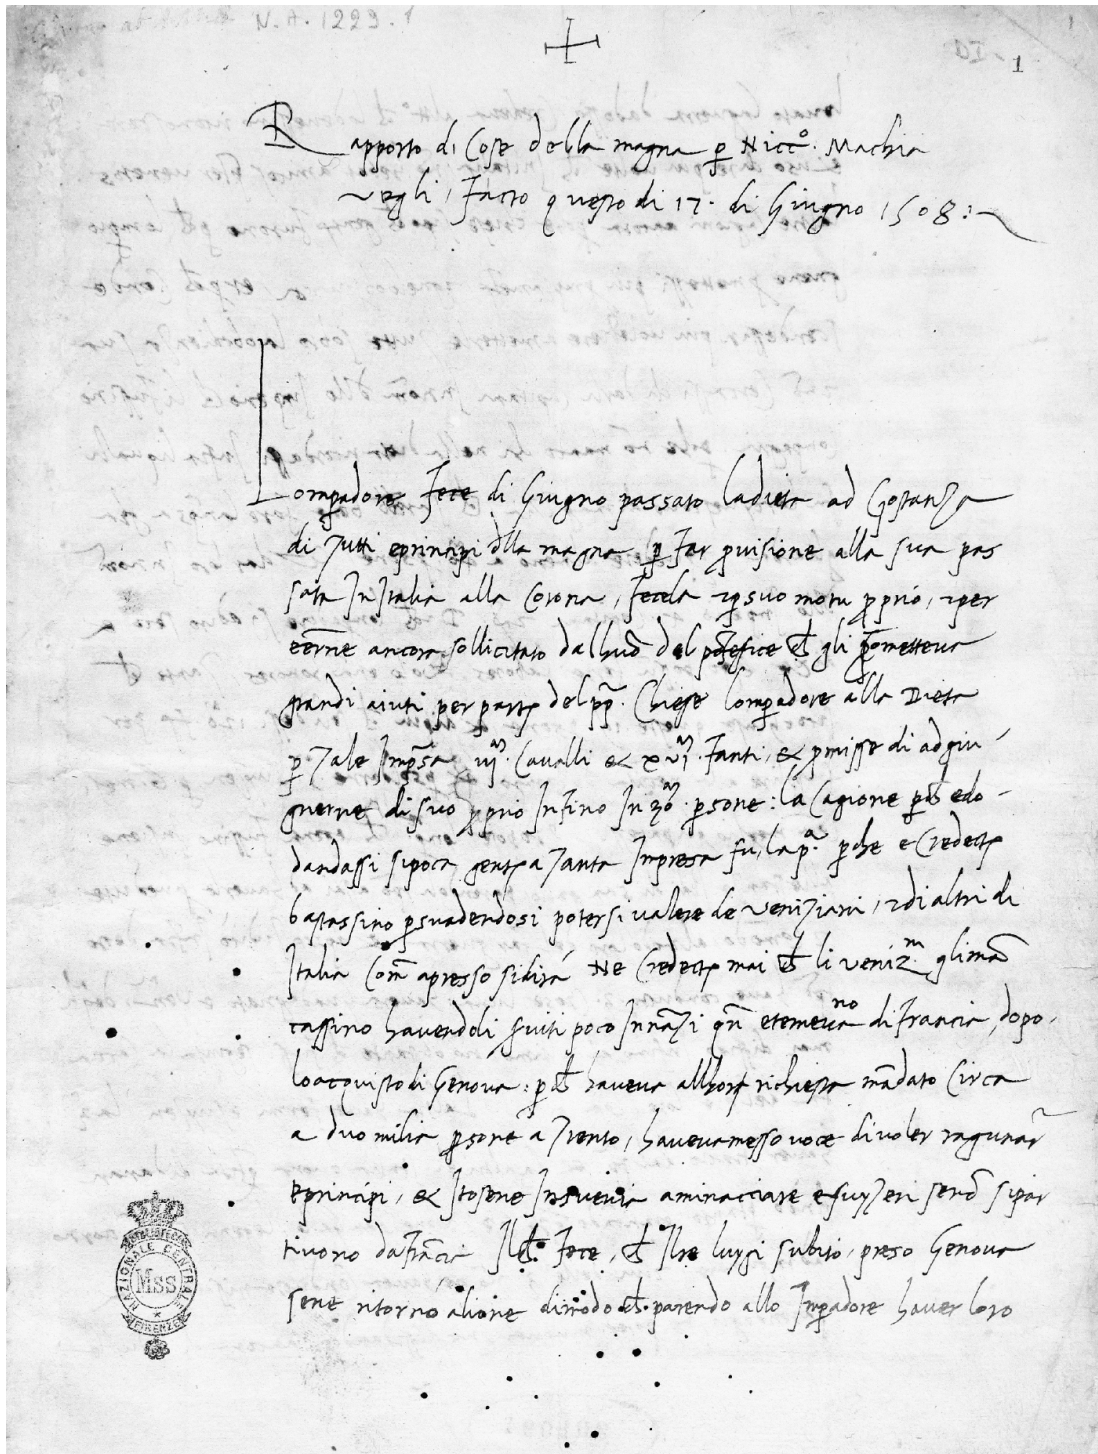 N.A. 1229. 1
1
Rapporto di Cose della magna p Nicco. Machia
vegli, Facto questo di 17. di Giugno 1508:
Lompadore Fece di Giugno passato ladieta ad Gostanza
di Tutti eprincipi dlla magna p Far pvisione alla sua pas
sata In Italia alla Corona, Fecela 7 p suo motu pprio, 7 per
eērne ancora sollicitato dalhuō del pōtefice ch gli pmetteva
grandi aiuti per parte del pp. Chiese lompadore alla Dieta
p Tale Impsa vjm. Cavalli & xvjm. Fanti, & pmisse di adgiu
gnerne di suo pprio Infino In persone: la Cagione pch e do
dandassi si poca gente a Tanta Impresa fu, la pa. pche e Credecte
bastassino psuadendosi potersi valere de veniziani, 7 di altri di
Italia Come apresso si dirà Ne Credecte mai ch li veniz.ni gli mā
cassino havendoli sviti poco Innāzi qn etemevano di Francia, dopo
loacquisto di Genova: pch haveva allhora richiesta mādato Circa
a duo milia psone a Trento, haveva messo voce di voler ragunar
Eprincipi, & Itosene In svevia aminacciare e suyzeri se nō si par
tivono da Frācia Il ch. Fece, ch Il re luygi subito, preso Genova
sene ritornó a lione dimodo ch. parendo allo Impadore haver loro
NAZIONALE CENTRALE
Mss
FIRENZE